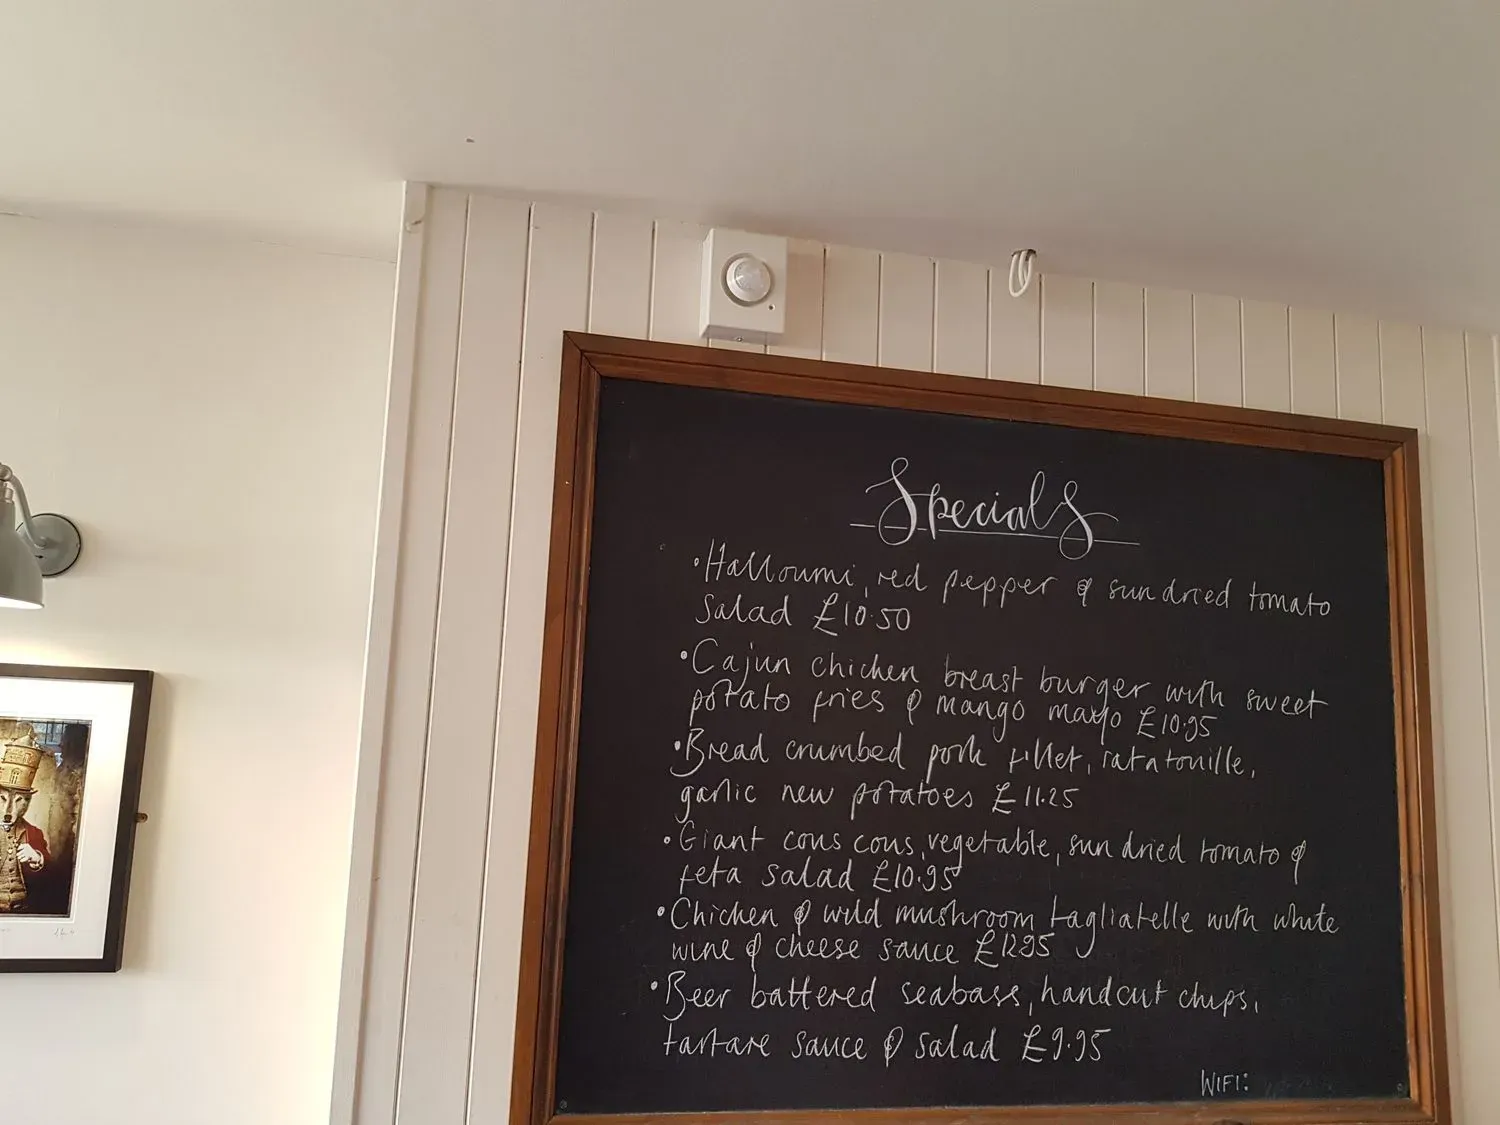 Specials
•Halloumi, red pepper & sundried tomato
Salad £10.50
•Cajun chicken breast burger with sweet
potato fries & mango mayo £10.95
•Bread crumbed pork fillet, ratatouille,
garlic new potatoes £11.25
•Giant cous cous, vegetable, sun dried tomato &
feta salad £10.95
•Chicken & wild mushroom tagliatelle with white
wine & cheese sauce £12.95
•Beer battered seabass, handcut chips,
tartare sauce & salad £9.95
WIFI: